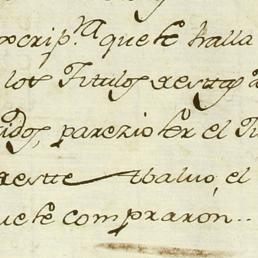 xcrip.na que se halla
los Titulos restes
idos, parezio ser el Ti
restte Thaluo, el
uese compraron..